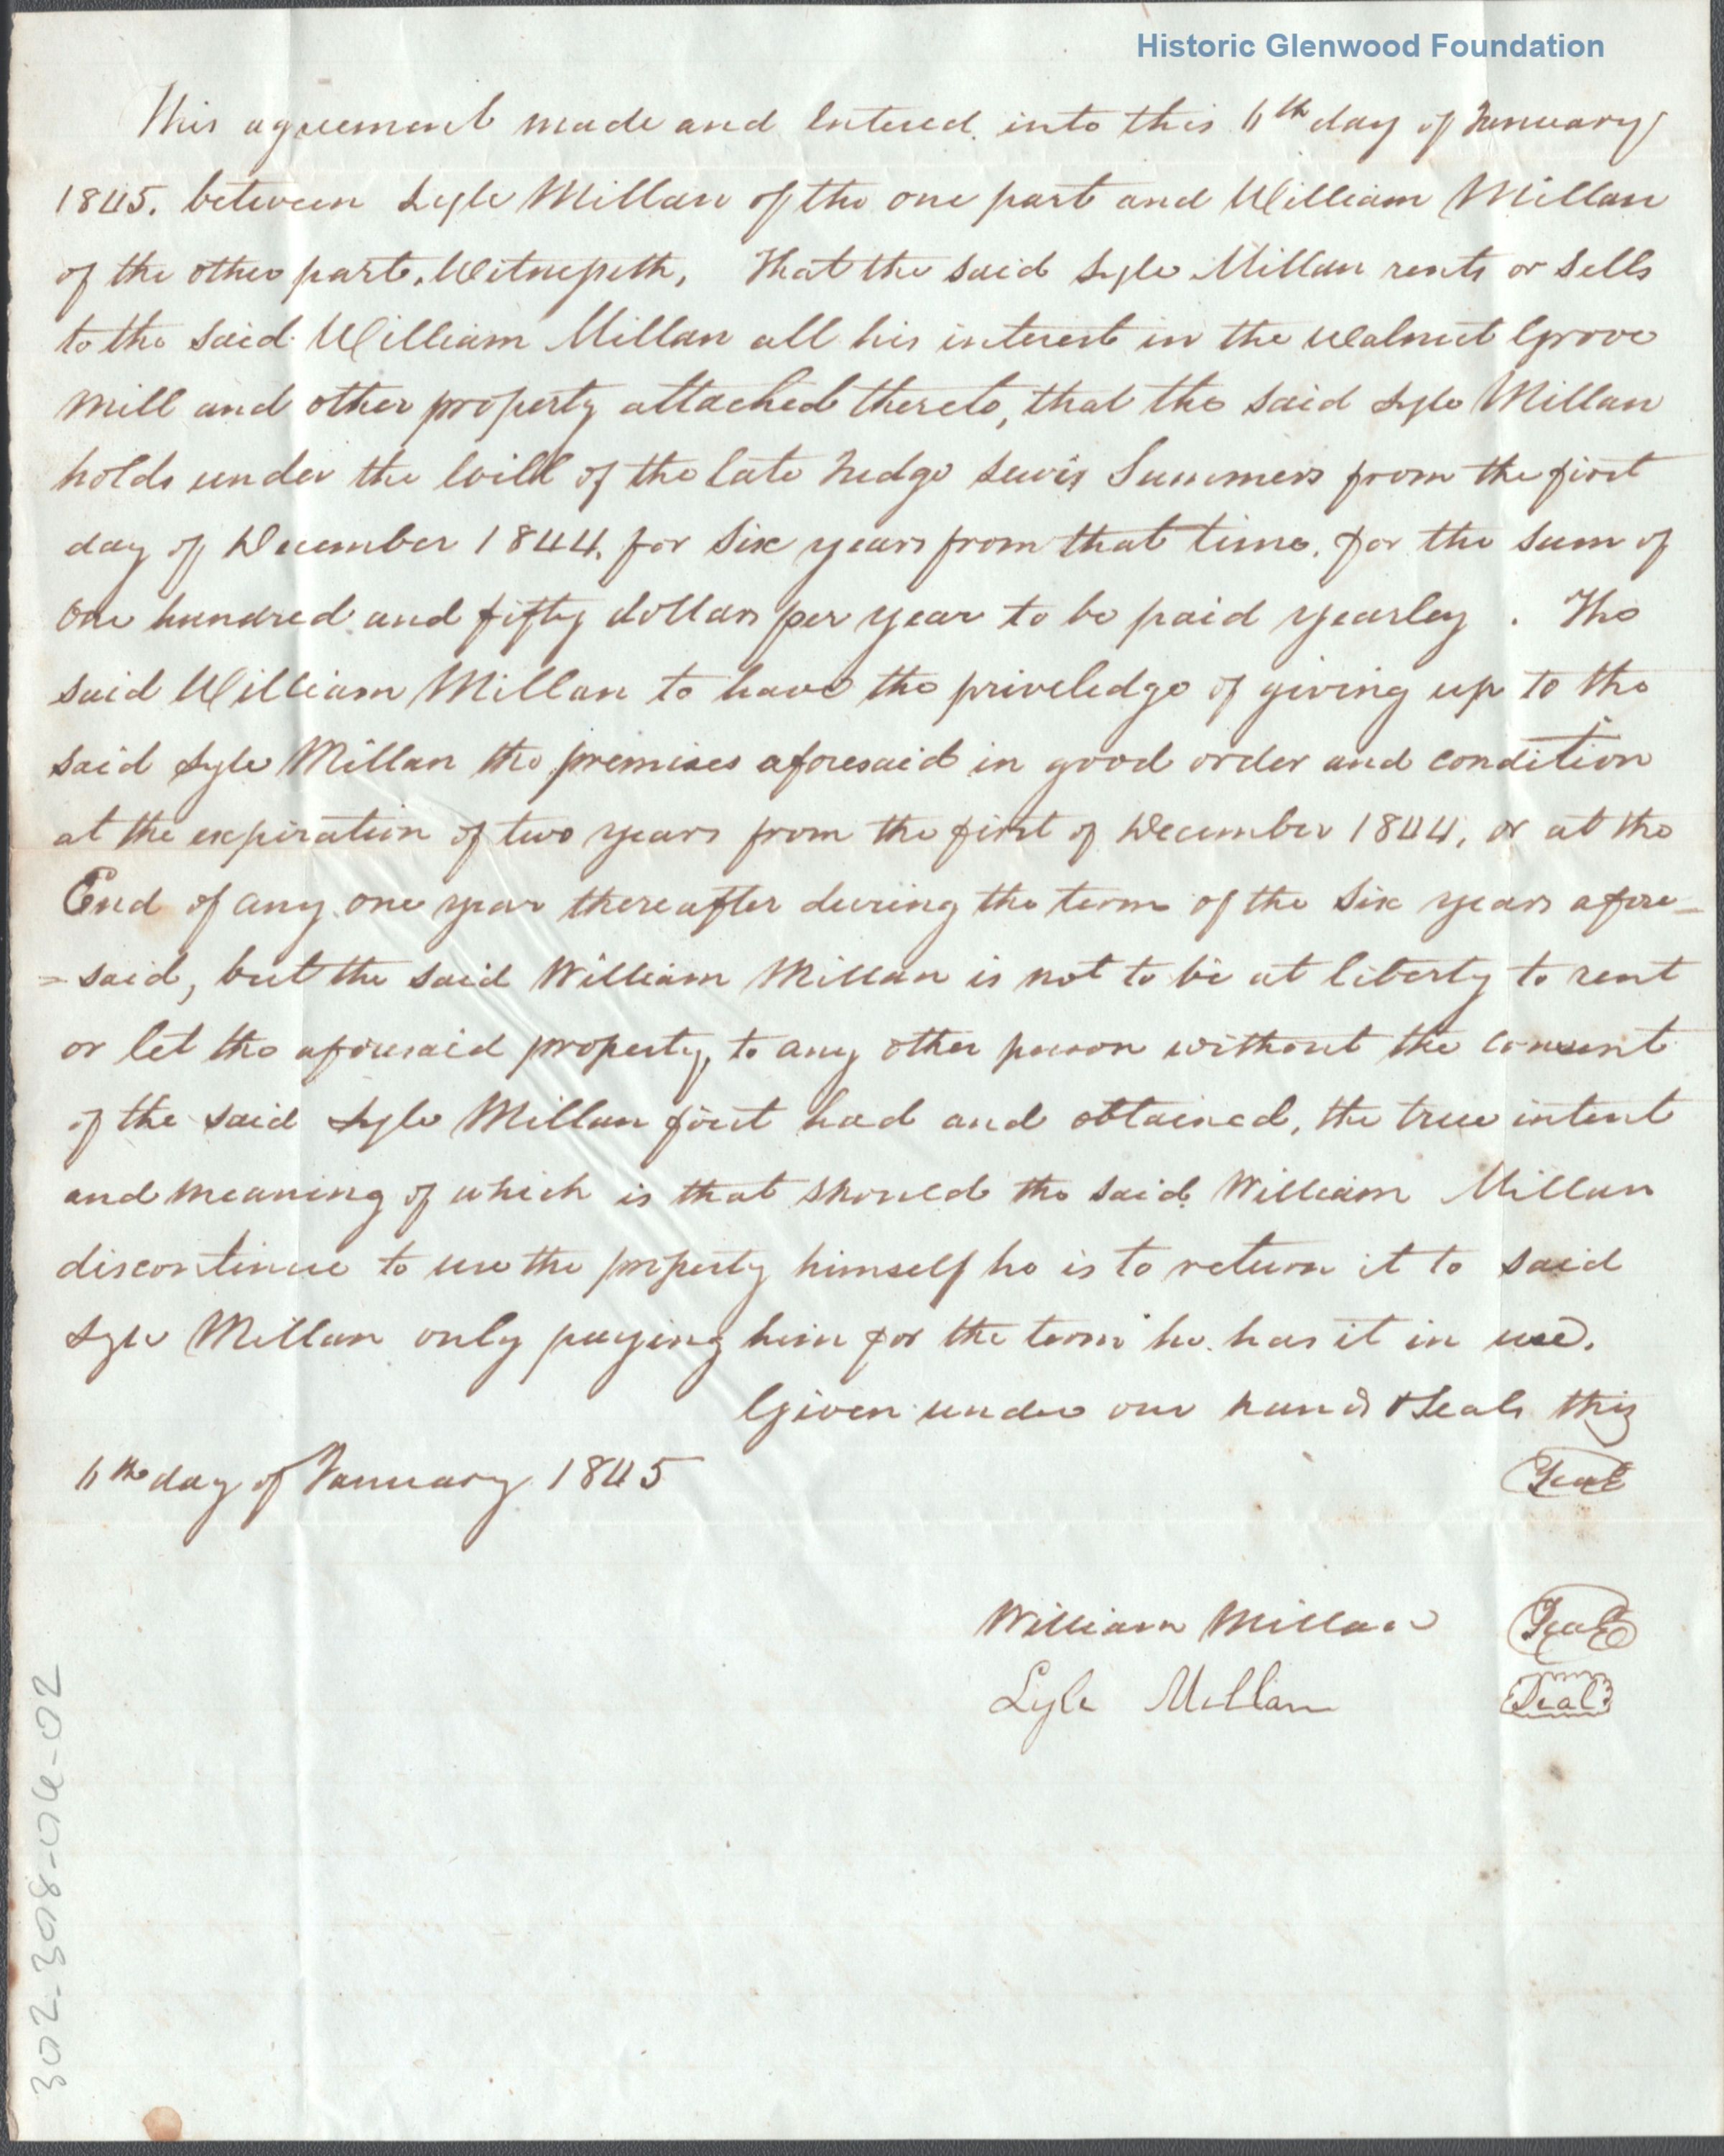 Historic Glenwood Foundation
This agreement made and Entered into this 6th day of January
1845. between Lyle Millan of the one part and William Millan
of the other part, Witnesseth, That the said Lyle Millan rents or sells
to the said William Millan all his interest in the Walnut Grove
Mill and other property attached thereto, that the said Lyle Millan
holds under the Will of the late Judge Lewis Summers from the first
day of December 1844. for six years from that time. for the sum of
One hundred and fifty dollars per year to be paid yearley . The
said William Millan to have the priveledge of giving up to the
said Lyle Millan the premises aforesaid in good order and condition
at the expiration of two years from the first of December 1844, or at the
End of any one year thereafter during the term of the six years afore-
=said, but the said William Millan is not to be at liberty to rent
or let the aforesaid property, to any other person without the consent
of the said Lyle Millan first had and obtained, the true intent
and meaning of which is that should the said William Millan
discontinue to use the property himself he is to return it to said
Lyle Millan only paying him for the term he has it in use.
Given under our hands & Seals this
6th day of January 1845
Seal
William Millan Seal
Lyle Millan Seal
302-308-06-02